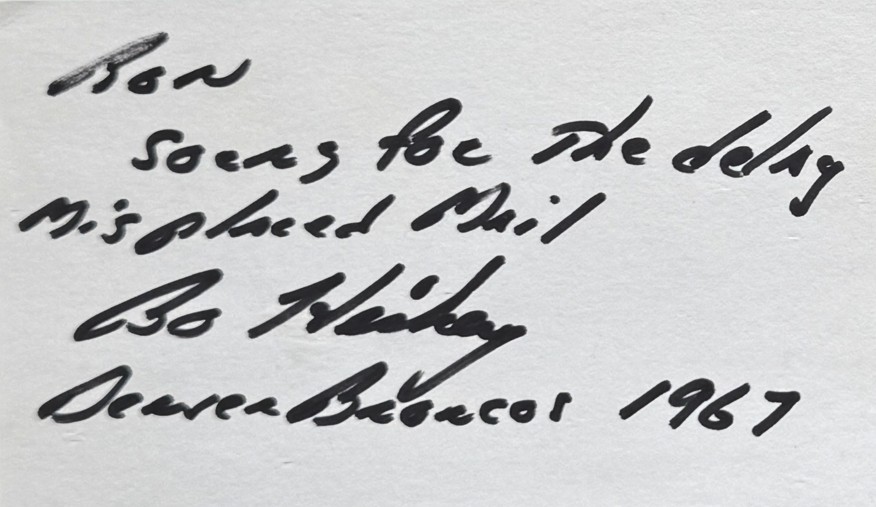 Ron
Sorry for The delay
Misplaced Mail
Bo Hickey
Denver Broncos 1967